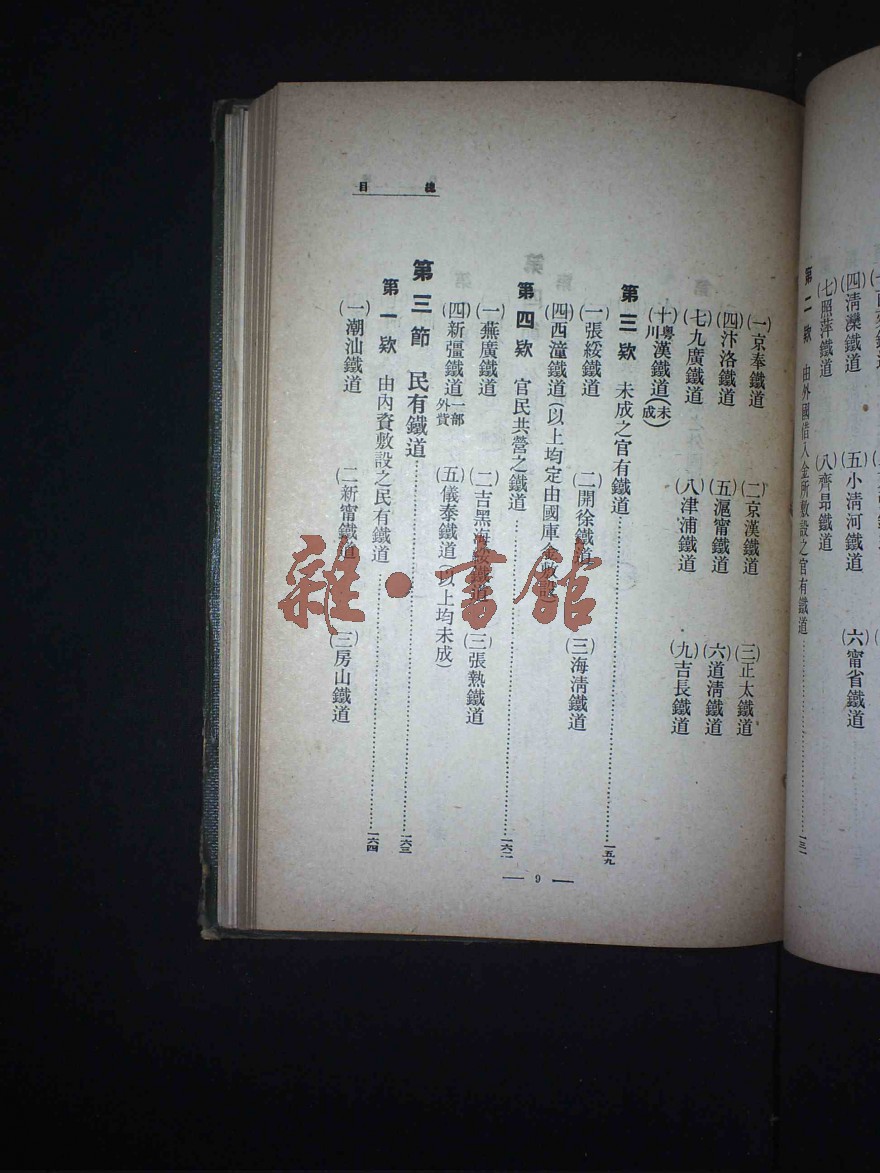 (四)淸灤鐵道 (五)小淸河鐵道 (六)甯省鐵道
(七)照萍鐵道 (八)齊昂鐵道
第二欵 由外國借入金所敷設之官有鐵道……一三一
(一)京奉鐵道 (二)京漢鐵道 (三)正太鐵道
(四)汴洛鐵道 (五)滬甯鐵道 (六)道淸鐵道
(七)九廣鐵道 (八)津浦鐵道 (九)吉長鐵道
(十)粤川漢鐵道(未成)
第三欵 未成之官有鐵道……一五九
(一)張綏鐵道 (二)開徐鐵道 (三)海淸鐵道
(四)西潼鐵道(以上均定由國庫金敷設
第四欵 官民共營之鐵道……一六二
(一)燕廣鐵道 (二)吉黑海綏鐵道 (三)張熱鐵道
(四)新彊鐵道一部外貲 (五)儀泰鐵道(以上均未成)
第三節 民有鐵道……一六三
第一欵 由內資敷設之民有鐵道……一六四
(一)潮汕鐵道 (二)新甯鐵道 (三)房山鐵道
總目
— 9 —
雜·書館